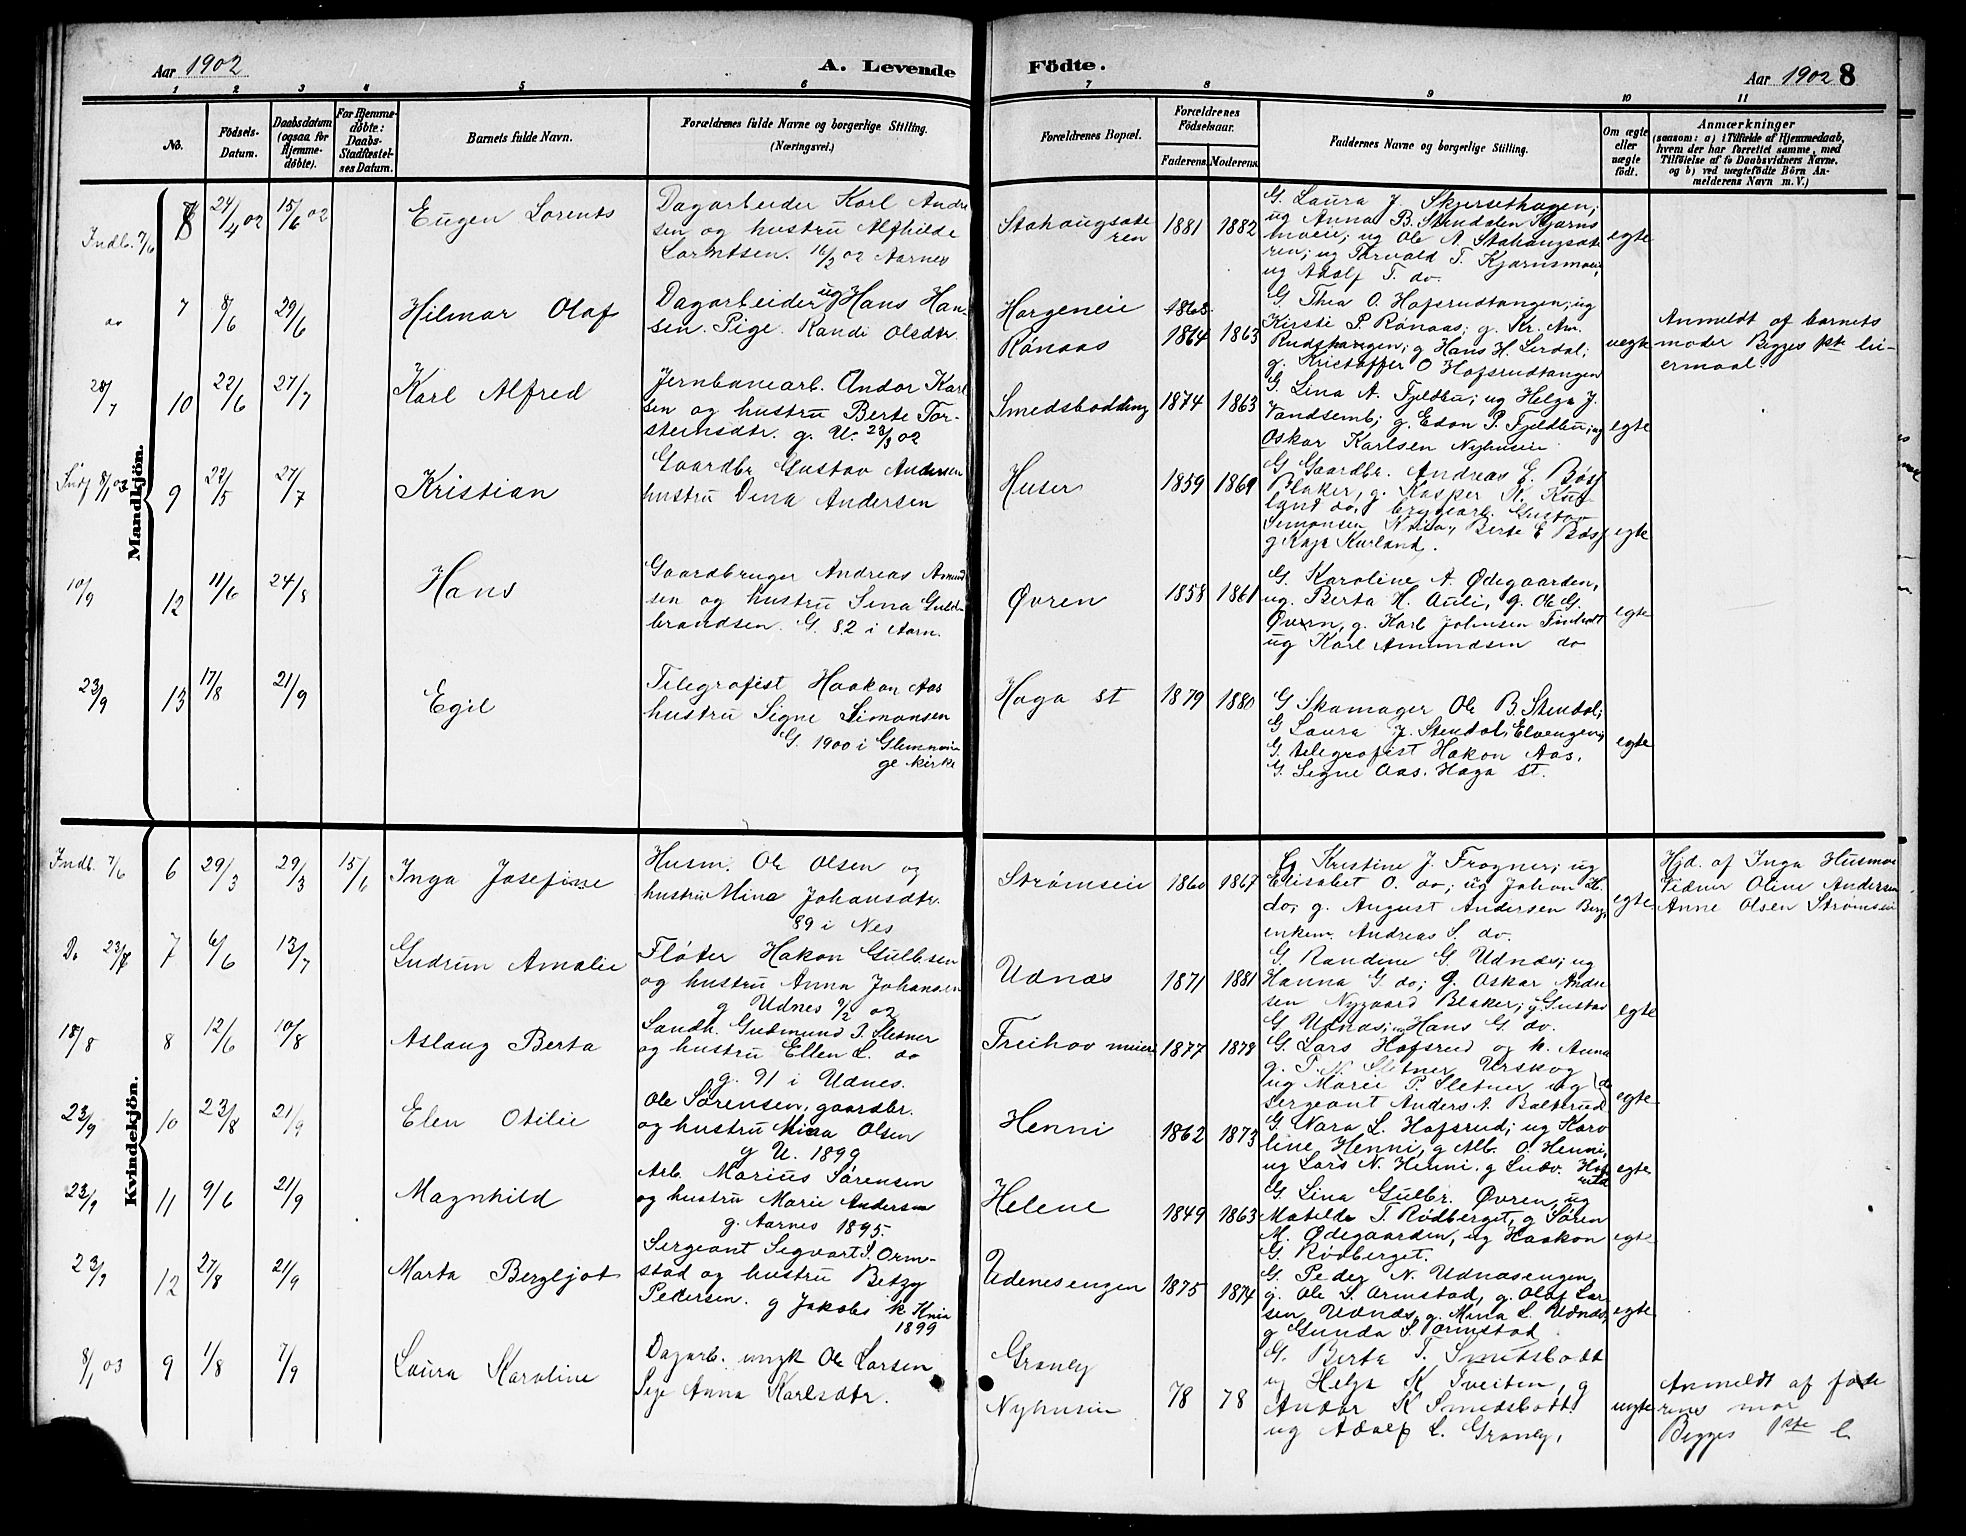 Aar 1902
A. Levende
Födte.
Aar 1902 8
1 2 3 4 5 6 7 8 9 10 11
No.
Födsels-
Datum.
Daabsdatum
(ogsaa for
Hjemme-
döbte).
For Hjemme-
döbte:
Daabs-
Stadfæstel-
ses Datum.
Barnets fulde Navn.
Forældrenes fulde Navne og borgerlige Stilling.
(Næringsvei.)
Forældrenes Bopæl.
Forældrenes
Födselsaar.
Faderens. Moderens.
Faddernes Navne og borgerlige Stilling.
Om ægte
eller
uægte
födt.
Anmærkninger
(saasom: a) i Tilfælde af Hjemmedaab,
hvem der har forrettet samme, med
Tilföielse af to Daabsvidners Navne,
og b) ved uægtefödte Börn An-
melderens Navn m. V.)
Mandkjön.
Indb. 7/6
8 24/4 02 15/6 02
Eugen Lorents
Dagarbeider Karl Andre
sen og hustru Alfhilde
Lorntsen. 16/2 02 Aarnes
Stahaugsæte
ren
1881 1882
G. Laura J. Skjersethagen;
ug Anna B. Stendalen Kjærns
moeie; ug Ole A. Stahaugsæte
ren; ug Torvald T. Kjærnsmoeie
ug Adolf T. do.
egte
do
7 8/6 29/6
Hilmar Olaf
Dagarbeider ug Hans Han
sen. Pige Randi Olsdtr.
Horgeneie
Rónaas
1868
1864 1863
G. Thea O. Hofsrudtangen; ug
Kirsti P. Rónaas; g. Kr. Am.
Rudshaugen; g Hans H. Lerdal;
g. Kristoffer O Hofsrudtangen
uegte
Anmeldt af barnets
moder Begges 1ste lei-
ermaal.
28/7
10 22/6 27/7
Karl Alfred
Jernbanearb. Andor Karl
sen og hustru Berte Tor-
steinsdtr. g. U. 23/3 02
Smedsbodding
1874 1863
G. Lina A. Fjeldbu; ug Helga J.
Vandsemb; g. Edon P. Fjeldbu; ug
Oskar Karlsen Nyhuseie
egte
Indf 8/1 03
9 22/5 27/7
Kristian
Gaardbr Gustav Andersen
hustru Dina Andersen
Huser
1859 1869
G Gaardbr. Andreas E. Bósj
Blaker, g. Kasper K. Kur
land do, g brygearb. Gustav
Simonsen N do, Berte E Bósj
g Kaja Kurland.
egte
10/9
12 11/6 24/8
Hans
Gaardbruger Andreas Amund
sen og hustru Lina Guld
brandsen. G. 82 i Aarn.
Øvren
1858 1861
G. Karoline A. Ødegaarden,
ug. Berta H. Auli, g. Ole G.
Øvern, g. Karl Johnsen
ug Karl Amundsen do
egte
23/9
13 17/8 21/9
Egil
Telegrafist Haakon Aas
hustru Signe Simonsen
G. 1900 i Glemmin
ge kirke
Haga st
1879 1880
G Skomager Ole B. Stendal;
G Laura J. Stendal, Elvengen;
G. telegrafist Hakon Aas.
G. Signe Aas. Haga st.
egte
Kvindekjön.
Indb. 7/6
6 29/3 29/3 15/6
Inga Josefine
Husm. Ole Olsen og
hustru Mina Johansdtr.
89 i Nes
Strómseie
1860 1867
G Kristine J. Frogner; ug
Elisabet O. do; ug Johan H.
do; g. August Andersen Berg,
enkem. Andreas S. do.
egte
Hjd. af Inga Husmo
Vidner Oline Andersen
Anne Olsen Strómseie
Do 23/7
7 6/6 13/7
Gudrun Amalie
Flóter Hakon Gulbsen
og hustru Anna Johansen
g Udnes 9/2 02
Udnæs
1871 1881
G. Randine G. Udnæs; ug
Hanna G. do; g. Oskar Andre
sen Nygaard Blaker; g Gustav
G. Udnæs; ug Hans G. do.
egte
18/8
8 12/6 10/8
Aslaug Berta
Landh. Gudmund P. Sletner
og hustru Ellen L. do
g. 91 i Udnes.
Freihov meieri
1877 1878
G. Lars Hofsrud og h. Anna
g. T. N. Sletner Urskog
ug Marie P. Sletner ug do
sergeant Anders A. Balterud
egte
23/9
10 23/8 21/9
Elen Otilie
Ole Sórensen, gaardbr.
og hustru Mina Olsen
g U. 1899
Henni
1862 1873
G. Nora L. Hofsrud; ug Karo
line Henni, g Alb. O. Henni,
ug Lars N. Henni. g Ludv. Hofs
rud
egte
23/9
11 9/6 21/9
Magnhild
Arb. Marius Sórensen
og hustru Marie Andersen
g. Aarnes 1895.
Helene
1849 1863
G. Lina Gulbr. Øvren, ug
Matilde T. Ródberget, g Sóren
M. Ødegaarden, ug Haakon
G. Ródberget.
egte
23/9
12 27/8 21/9
Marta Bergljot
Sergeant Segvart S. Orm-
stad og hustru Betzy
Pedersen. g Jakobs k. Knia
1899
Udenesengen
1875 1874
G. Peder N. Udnæsengen,
g. Ole S. Ormstad, g. Olaf Lar
sen Udnæs, g. Mina L. Udnæs,
g Gunda S. Ormstad
egte
8/1 03
9 1/8 7/9
Laura Karoline
Dagarb. ungk Ole Larsen
Pige Anna Karlsdtr.
Gronby
Nyhusein
78 78
G. Berta T. Smedsbodt
ug Helga K Tveiten, g
Andor K Smedsbodt.
ug Adolf L. Gronby.
uegte
Anmeldt af fade
rens mor
Begges 1ste l.